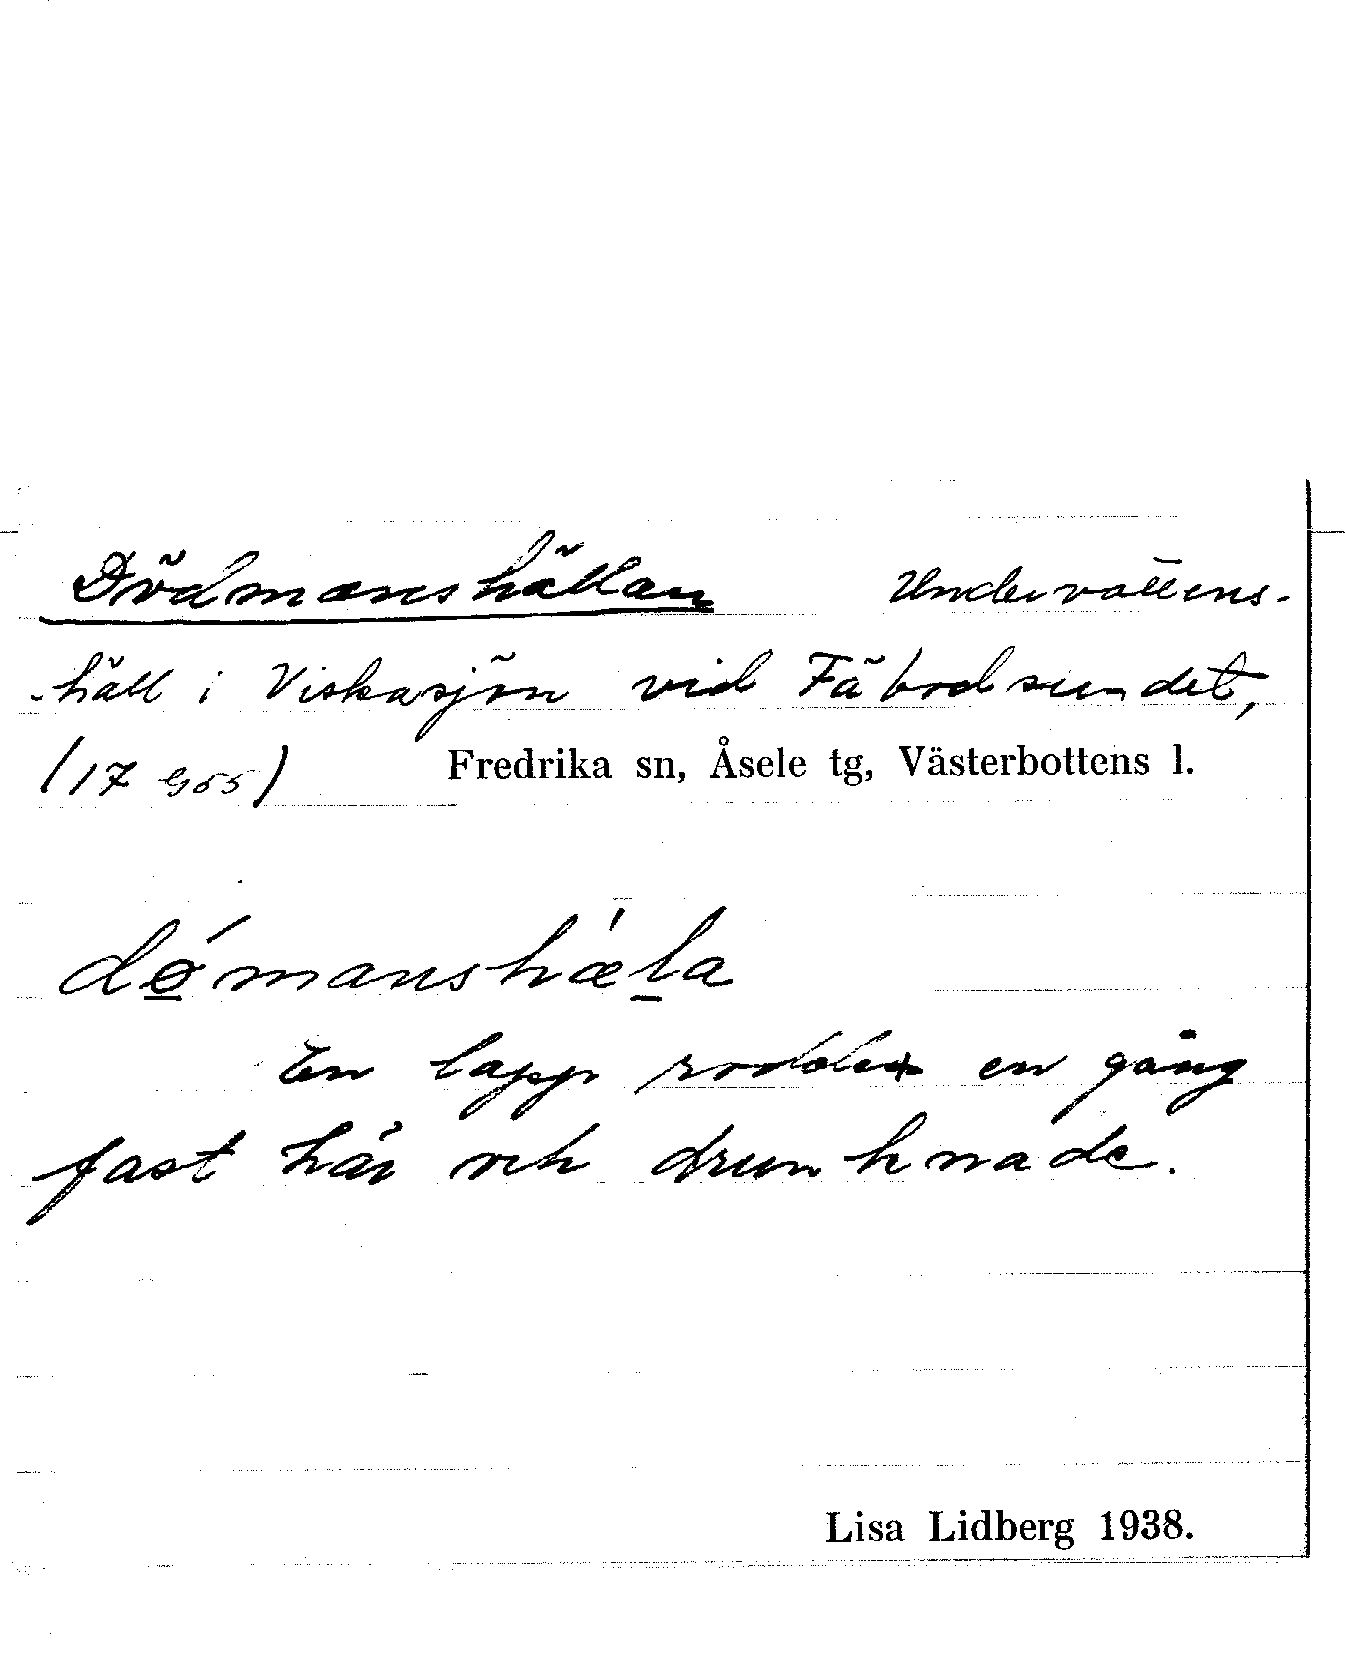 Dödmanshällan Undervattens-
-häll i Viskasjön vid Fäbodsundet,
(17 g55) Fredrika sn, Åsele tg, Västerbottens l.
dø´manshæ'la
En lapp rodde en gång
fast här och drunknade.
Lisa Lidberg 1938.